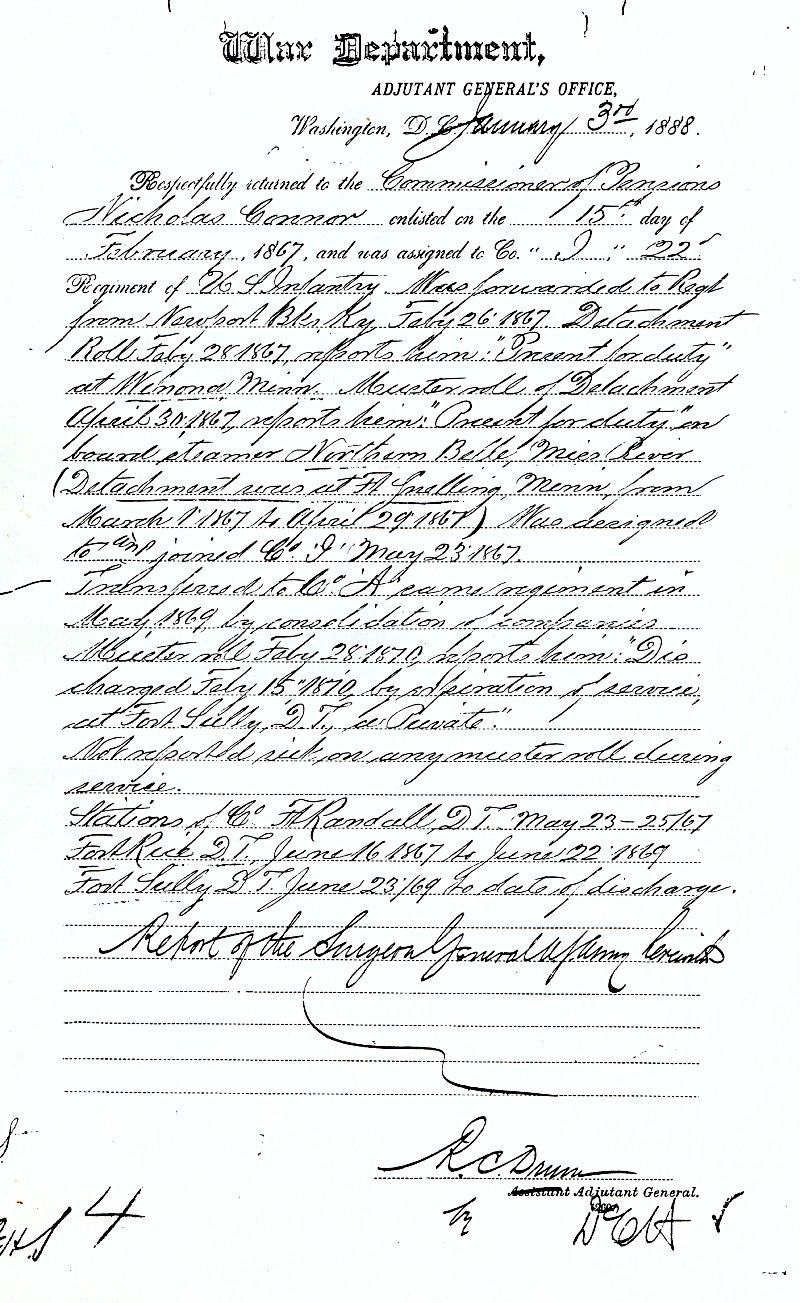 War Department,
ADJUTANT GENERAL'S OFFICE,
Washington, D.C. January 3rd, 1888.
Respectfully returned to the Commissioner of Pensions
Nicholas Connor enlisted on the 15th day of
February, 1867, and was assigned to Co. "I" 22"
Regiment of U S Infantry. Was forwarded to Regt
from Newport Bks, Ky. Feby 26 1867. Detachment
Roll Feby 28 1867, reports him: "Present for duty"
at Winona, Minn. Muster roll of Detachment
April 30, 1867, reports him: "Present for duty" on
board steamer Northern Belle, Miss River
(Detachment was at Ft Snelling, Minn, from
March 1 1867 to April 29 1867) Was assigned
to and joined Co "I" May 23 1867.
Transferred to Co A same regiment in
May 1869, by consolidation of companies
Muster roll Feby 28 1870, reports him: "Dis
charged Feby 15" 1870, by expiration of service,
at Fort Sully, D.T., a Private."
Not reported sick on any muster roll during
service.
Stations of Co Ft Randall, D.T. May 23-25/67
Fort Rice D.T., June 16 1867 to June 22 1869
Fort Sully D.T. June 23/69 to date of discharge.
Report of the Surgeon General U S Army
R. C. Drum
Assistant Adjutant General.
by
4